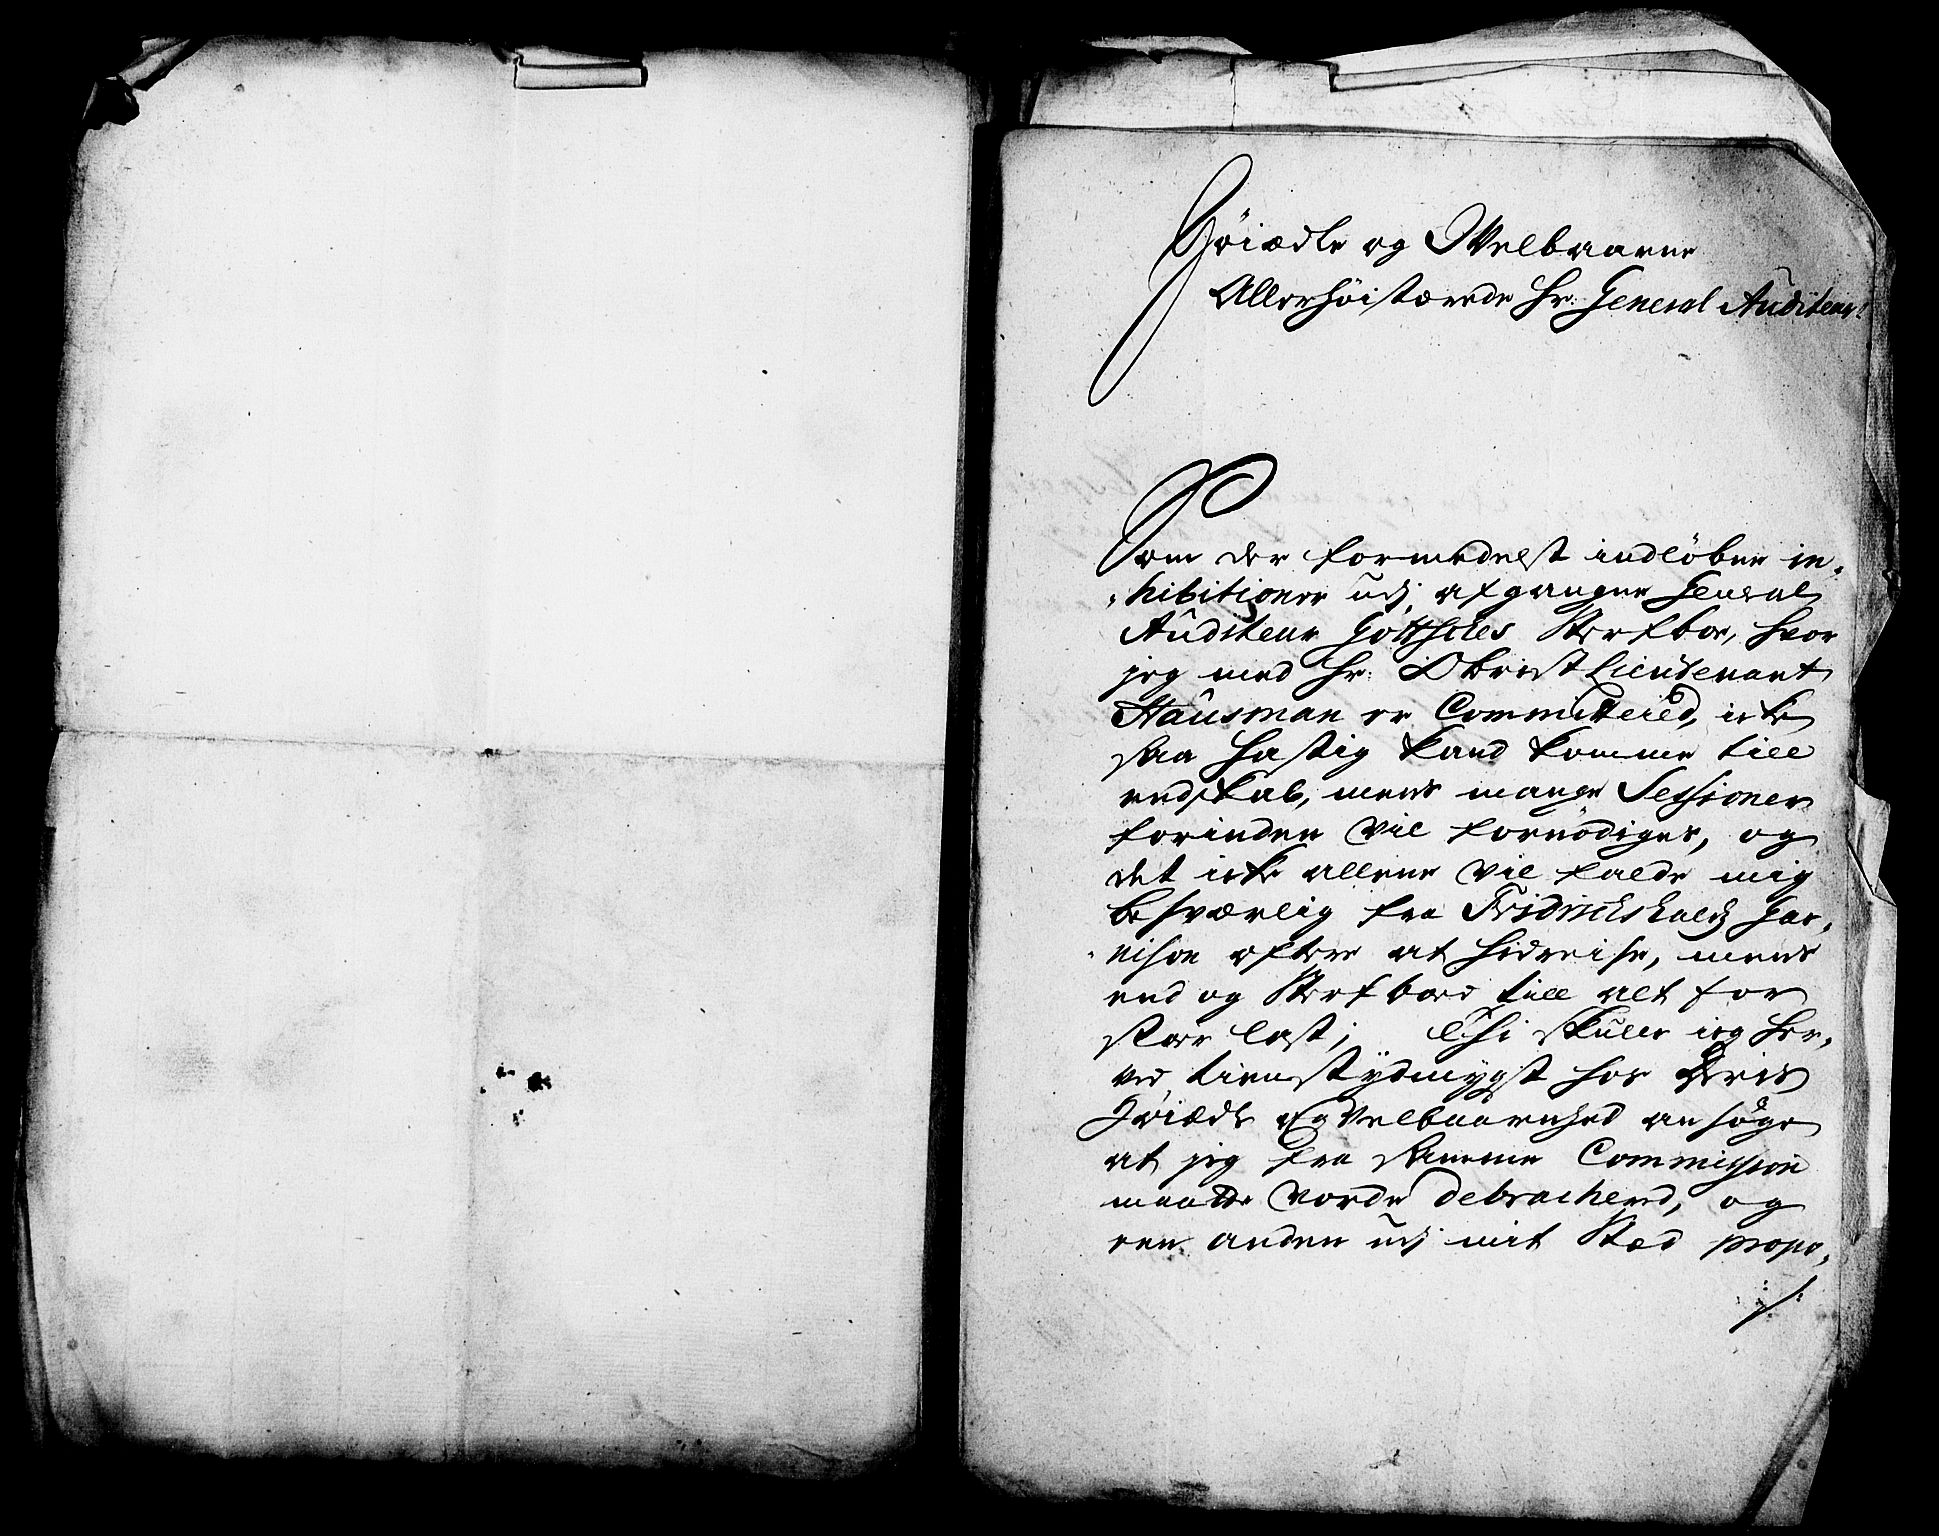 Høiædle og Welbaarne
Allerhöistærede Hr. General Auditeur!
Som der formedelst indløbne in-
-hibitioner udj afgangne General
Auditeur Gottscles Sterfboe, hvor
jeg med Hr. Obrist Lieutenant
Hausman er Committered, icke
saa hastig kand komme till
endskab, mens mange Sessioner
forinden vil fornödiges, og
det icke allene vil falde mig
besværlig fra Fridrichshalds Gar-
-nison oftere at hidreise, mens
end og Sterfboed till alt for
stor last; Thi skulle ieg her-
ved tienstydmygst hos Deris
Høiædle og Velbaarenhed ansöge
at jeg fra samme Commission
maatte vorde debracherd, og
een anden udj mit Sted propo-
./.